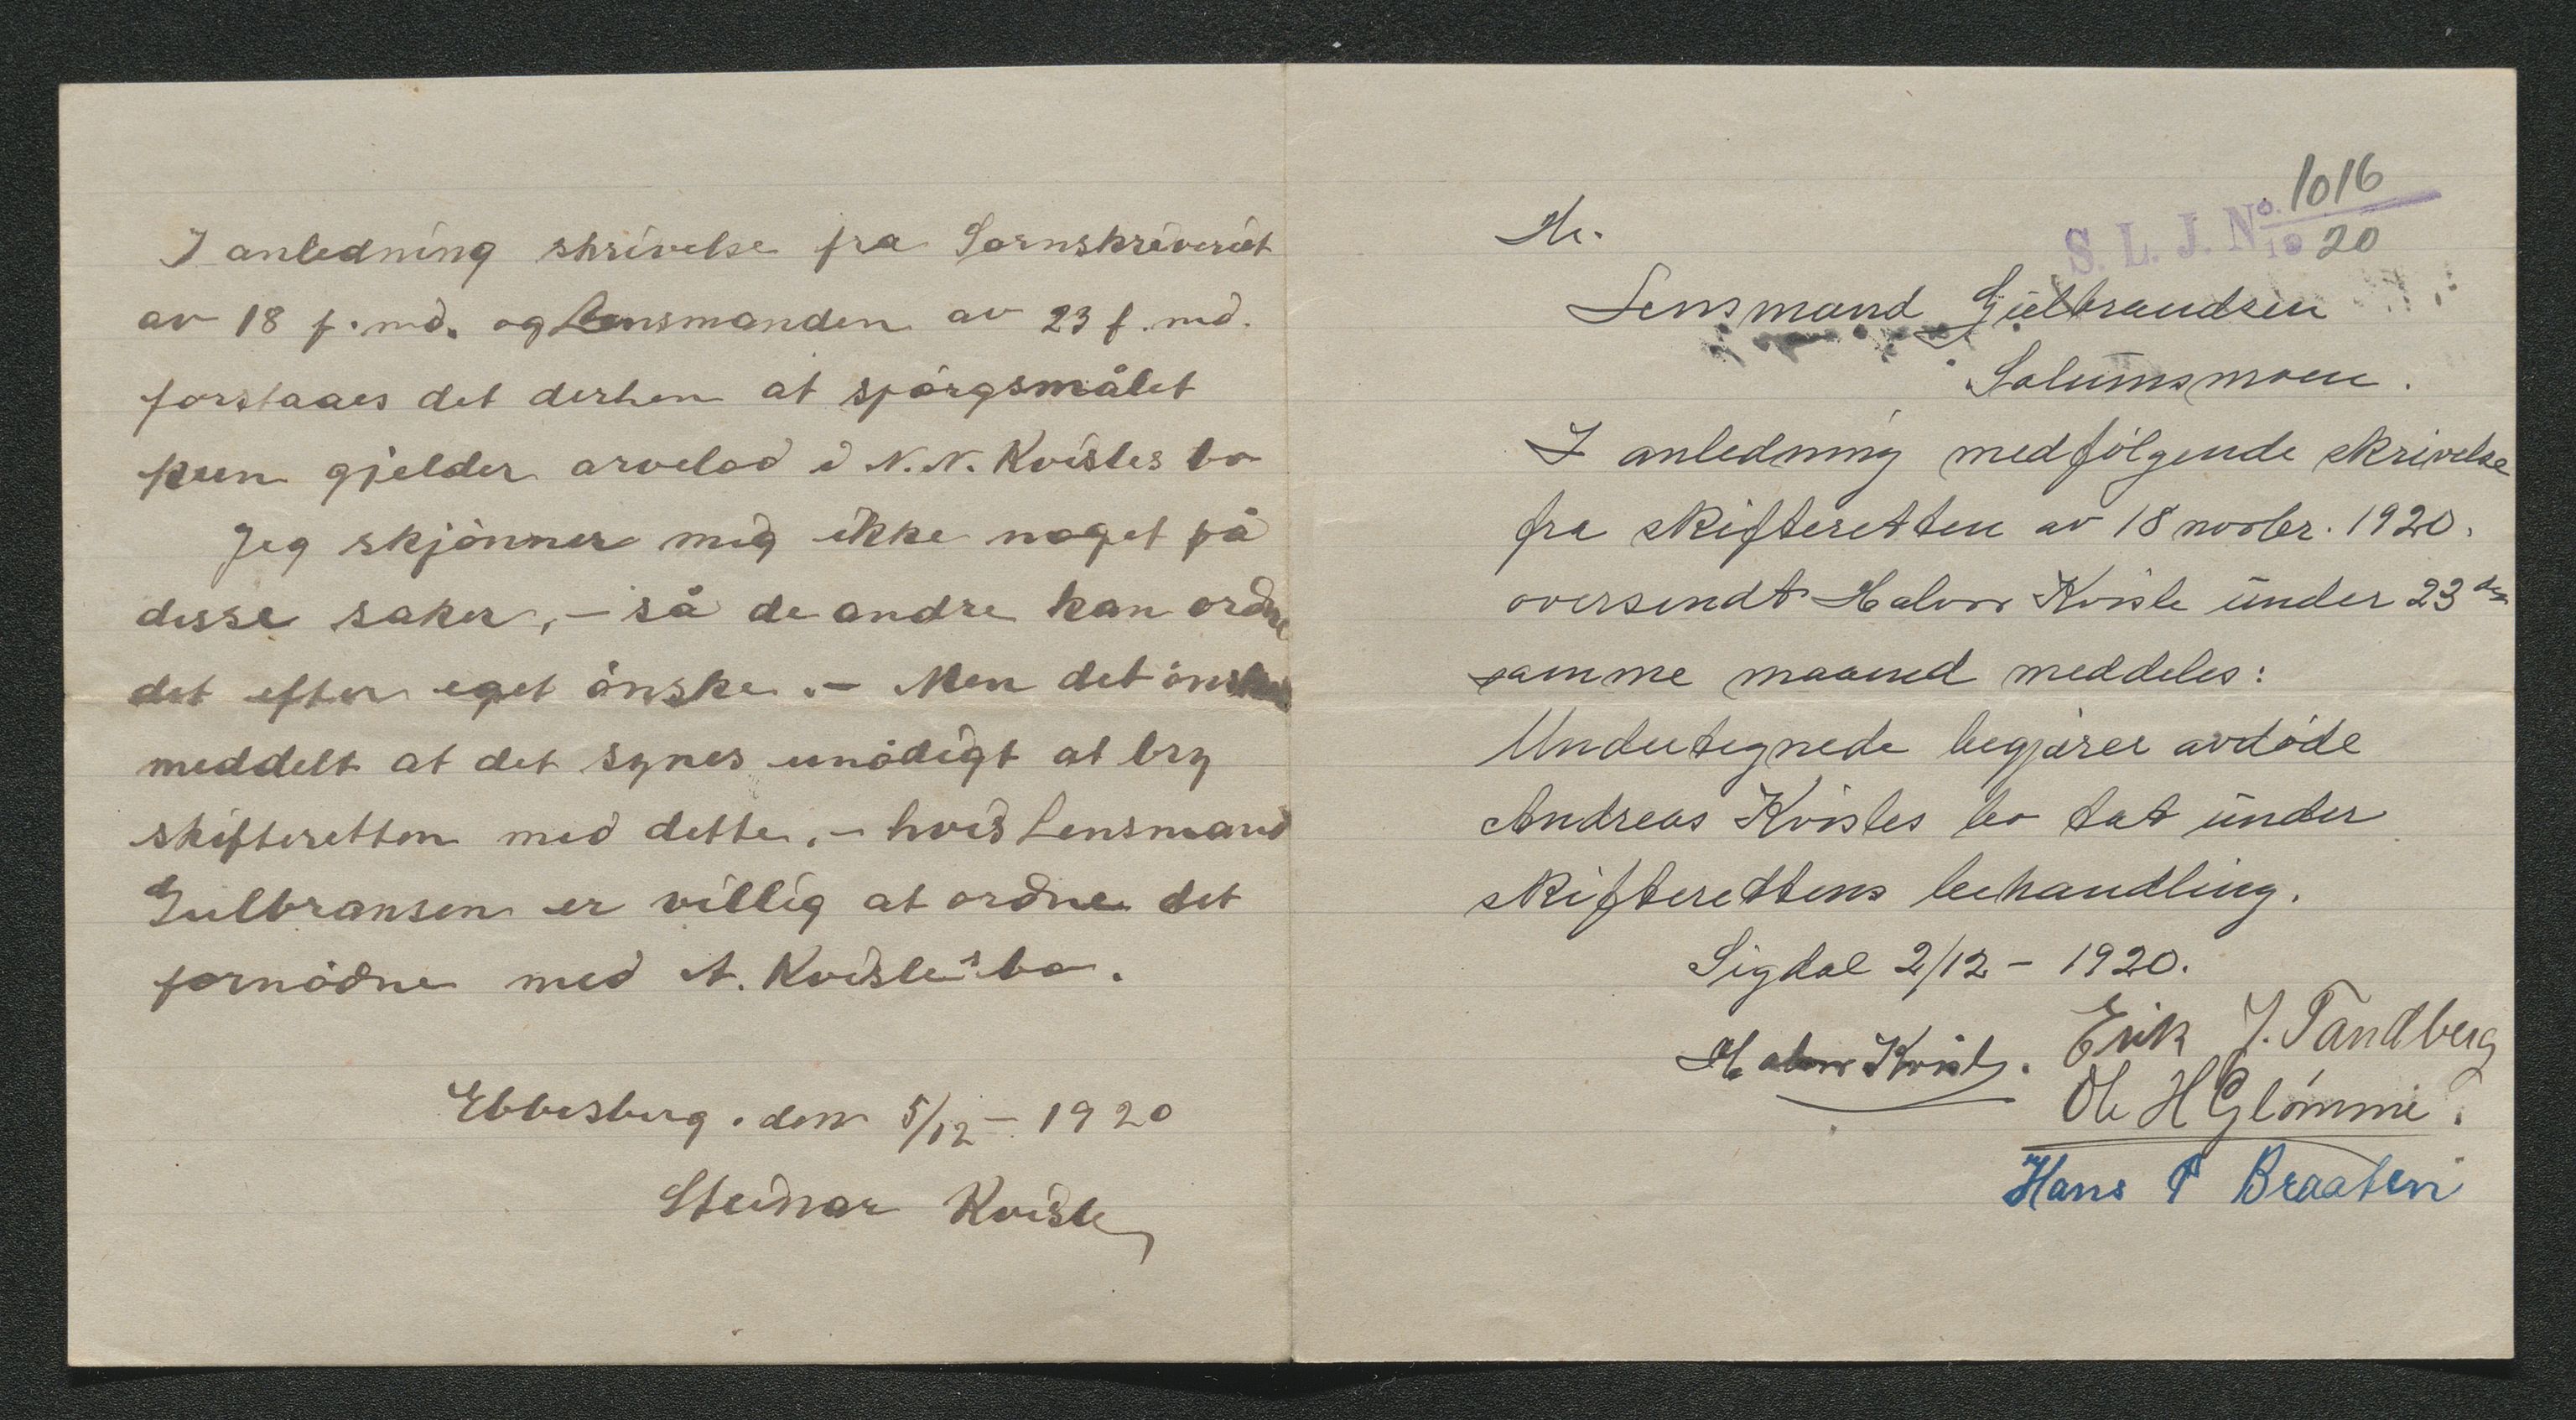 I anledning skrivelse fra Sornskriveriet
av 18 f. md. og Lensmanden av 23 f. md.
forstaaes det derhen at spörgsmålet
kun gjelder arvelod i N. N. Kvisles bo
Jeg skjönner mig ikke noget på
disse saker, – så de andre kan ordne
det efter eget önske. – Men det önskes
meddelt at det synes unödigt at bry
skifteretten med dette, – hvis Lensmand
Gulbransen er villig at ordne det
fornödne med A. Kvisles bo.
Ebbesberg. den 5/12 – 1920
Steinar Kvisle
S. L. J. No. 1016
19 20
Hr.
Lensmand Gulbrandsen
Solumsmoen.
I anledning medfölgende skrivelse
fra skifteretten av 18 novbr. 1920.
oversendt Halvor Kvisle under 23 ds
samme maaned meddeles:
Undertegnede begjærer avdöde
Andreas Kvisles bo tat under
skifterettens behandling.
Sigdal 2/12 – 1920.
Halvor Kvisle. Erik J. Tandberg
Ole H Glömmi.
Hans P Braaten